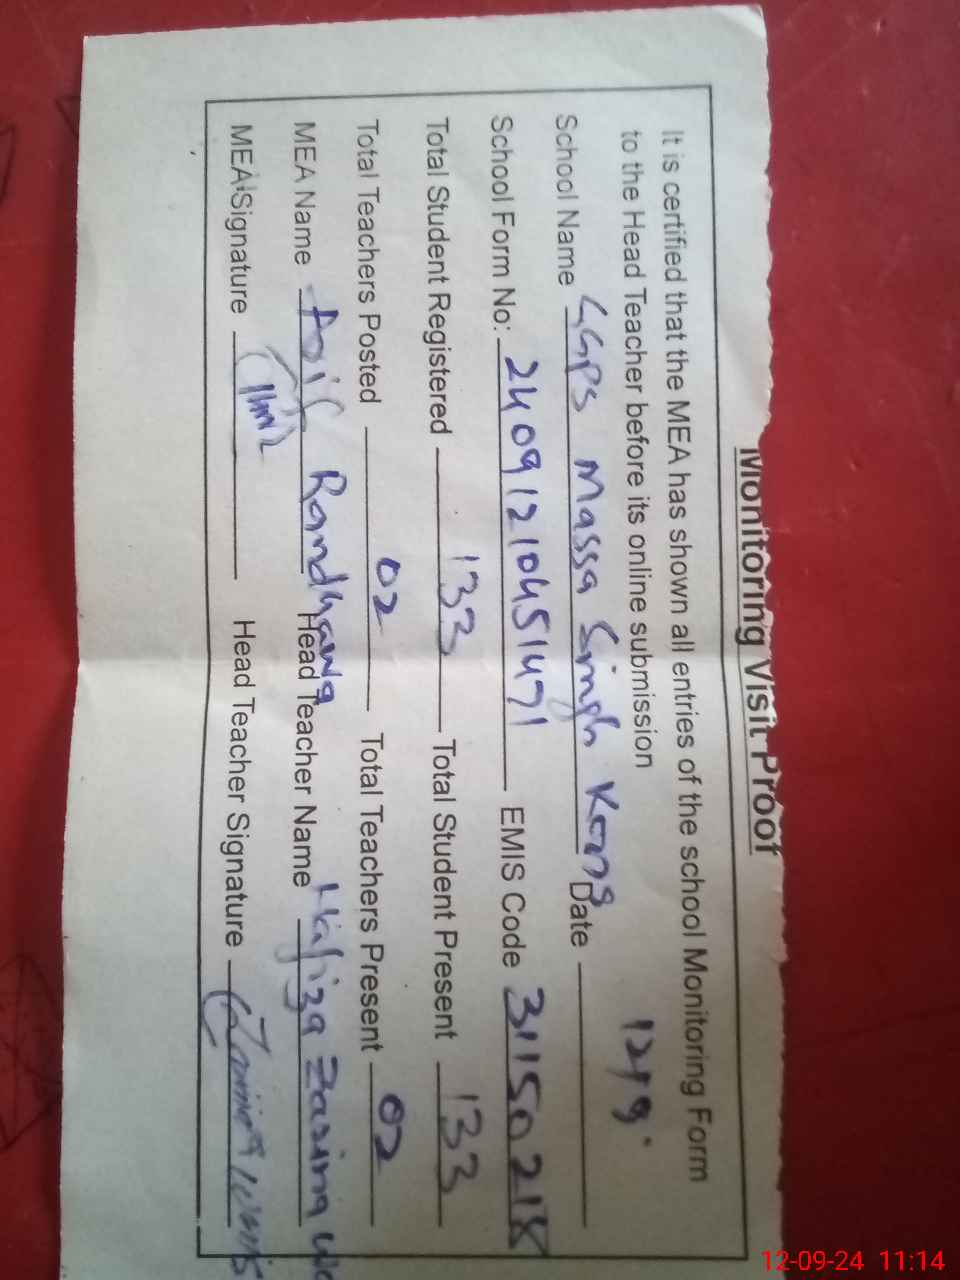 Monitoring Visit Proof
It is certified that the MEA has shown all entries of the school Monitoring Form
to the Head Teacher before its online submission
School Name GGPS Massa Singh Date 12/9
School Form No: 24091210451471 EMIS Code 31150218
Total Student Registered 133 Total Student Present 133
Total Teachers Posted 02 Total Teachers Present 02
MEA Name Asif Randhawa Head Teacher Name Hafiza
MEA Signature Head Teacher Signature
12-09-24 11:14